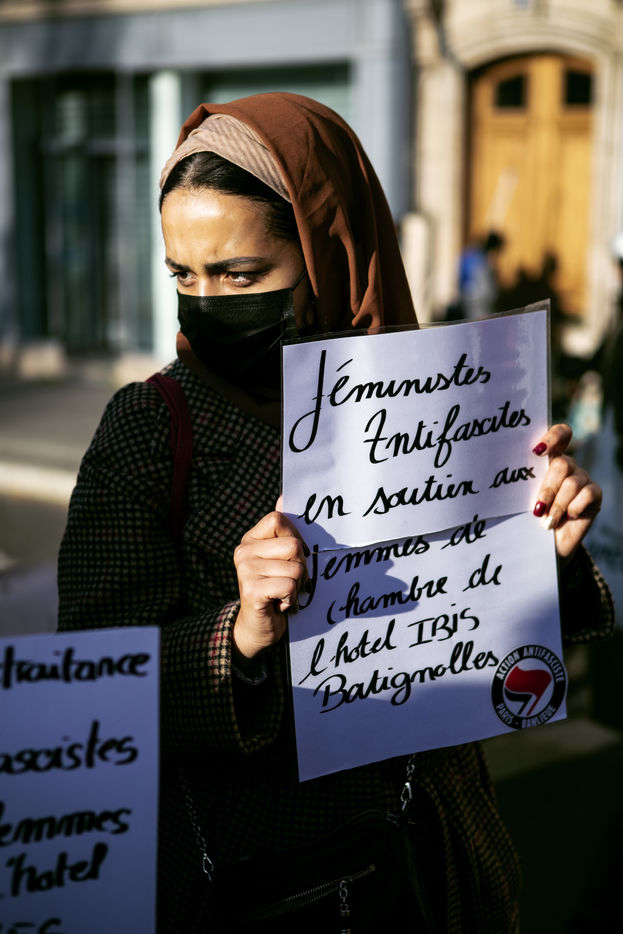 féministes
Antifascites
en soutien aux
femmes de
chambre de
l'hotel IBIS
Batignolles
ACTION ANTIFASCISTE
PARIS - BANLIEUE
traitance
ascistes
emmes
l'hotel